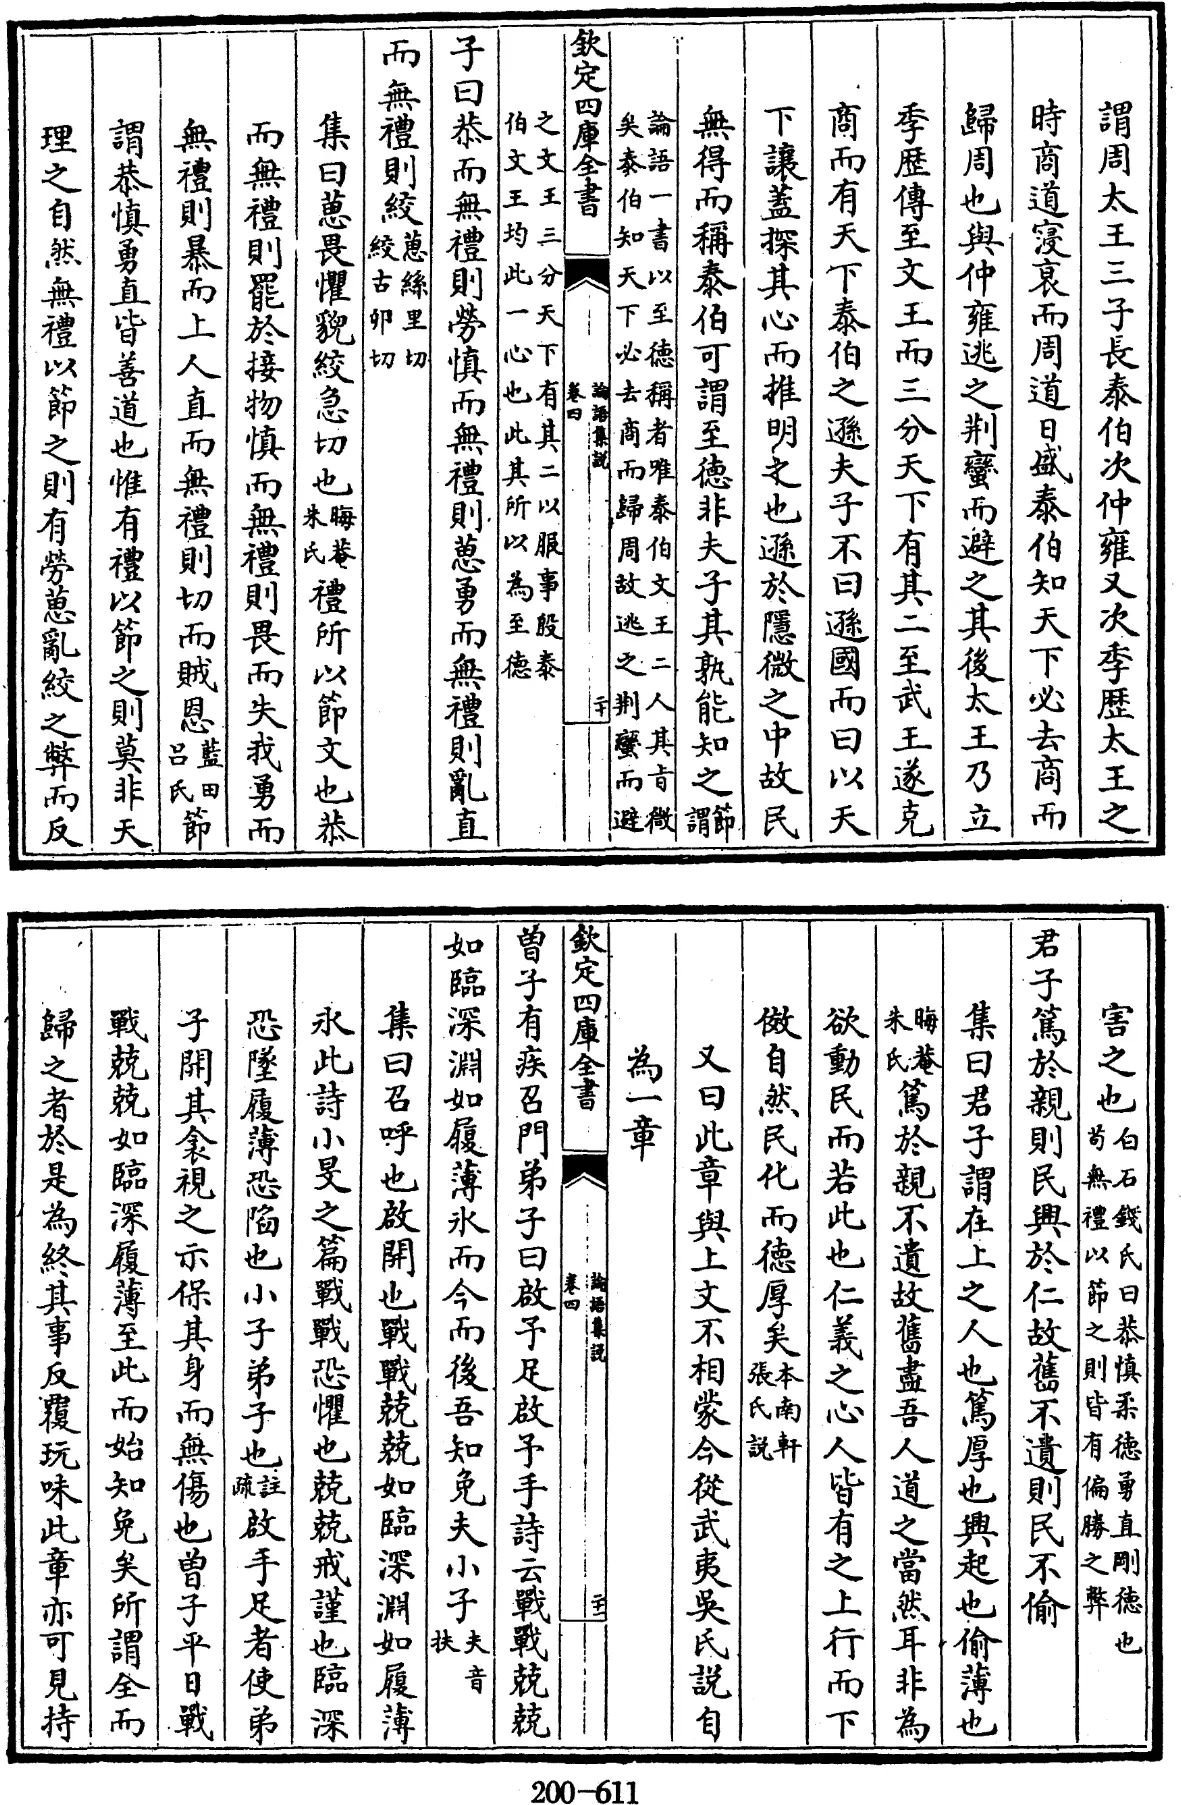 謂周太王三子長泰伯次仲雍又次季歷太王之
時商道寖衰而周道日盛泰伯知天下必去商而
歸周也與仲雍逃之荆蠻而避之其後太王乃立
季歷傳至文王而三分天下有其二至武王遂克
商而有天下泰伯之遜夫子不曰遜國而曰以天
下讓蓋探其心而推明之也遜於隱微之中故民
無得而稱泰伯可謂至德非夫子其孰能知之節謂
論語一書以至德稱者唯泰伯文王二人其㫖微
矣泰伯知天下必去商而歸周故逃之荆蠻而避
欽定四庫全書
論語集説
卷四
二十
之文王三分天下有其二以服事殷泰
伯文王均此一心也此其所以為至德
子曰恭而無禮則勞慎而無禮則葸勇而無禮則亂直
而無禮則絞葸絲里切絞古卯切
集曰葸畏懼貌絞急切也晦菴朱氏禮所以節文也恭
而無禮則罷於接物慎而無禮則畏而失我勇而
無禮則暴而上人直而無禮則切而賊恩藍田吕氏節
謂恭慎勇直皆善道也惟有禮以節之則莫非天
理之自然無禮以節之則有勞葸亂絞之弊而反
害之也白石錢氏曰恭慎柔德勇直剛德也苟無禮以節之則皆有偏勝之弊
君子篤於親則民興於仁故舊不遺則民不偷
集曰君子謂在上之人也篤厚也興起也偷薄也
晦菴朱氏篤於親不遺故舊盡吾人道之當然耳非為
欲動民而若此也仁義之心人皆有之上行而下
傚自然民化而德厚矣本南軒張氏説
又曰此章與上文不相蒙今從武夷吳氏説自
為一章
欽定四庫全書
論語集説
卷四
二十一
曽子有疾召門弟子曰啟予足啟予手詩云戰戰兢兢
如臨深淵如履薄氷而今而後吾知免夫小子夫音扶
集曰召呼也啟開也戰戰兢兢如臨深淵如履薄
氷此詩小旻之篇戰戰恐懼也兢兢戒謹也臨深
恐墜履薄恐陷也小子弟子也註疏啟手足者使弟
子開其衾視之示保其身而無傷也曽子平日戰
戰兢兢如臨深履薄至此而始知免矣所謂全而
歸之者於是為終其事反覆玩味此章亦可見持
200-611